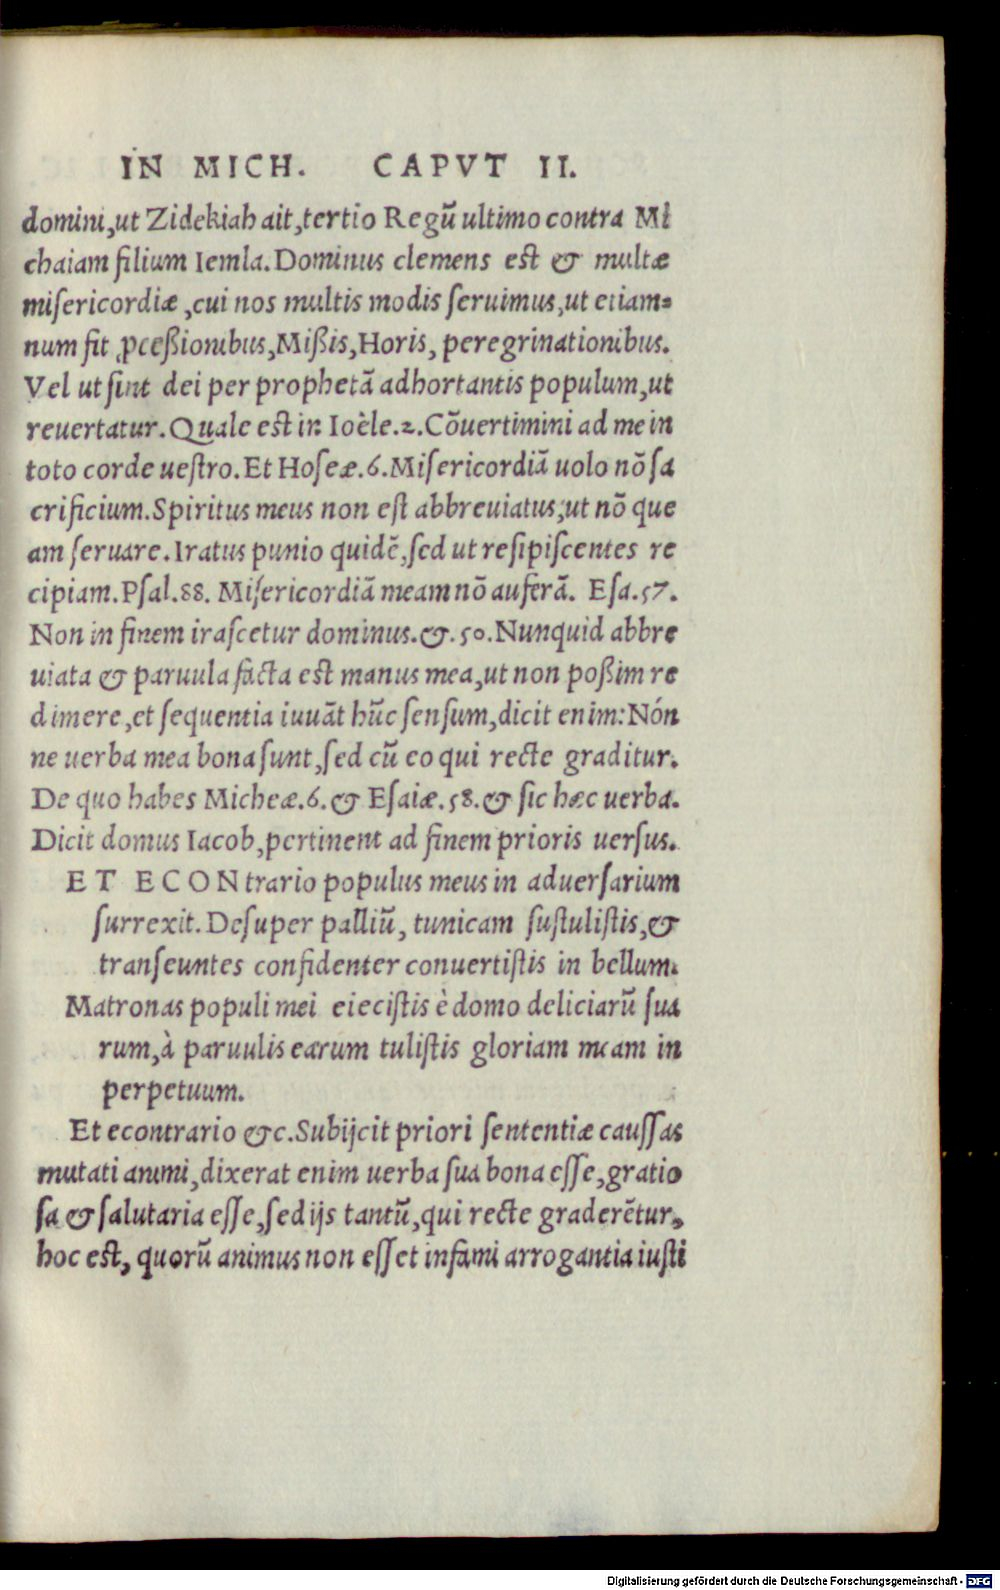 IN MICH. CAPVT II.
domini,ut Zidekiah ait,tertio Regū ultimo contra Mi
chaiam filium Iemla.Dominus clemens est & multæ
miſericordiæ,cui nos multis modis ſeruimus,ut etiam=
num fit ꝓceßionibus,Mißis,Horis, peregrinationibus.
Vel ut ſint dei per prophetā adhortantis populum,ut
reuertatur.Quale est in Ioèle.2.Cōuertimini ad me in
toto corde ueſtro.Et Hoſeæ.6.Miſericordiā uolo nō ſa
crificium.Spiritus meus non eſt abbreuiatus,ut nō que
am ſeruare.Iratus punio quidē,ſed ut reſipiſcentes re
cipiam.Pſal.88. Miſericordiā meam nō auferā. Eſa.57.
Non in finem iraſcetur dominus.&.50.Nunquid abbre
uiata & paruula facta est manus mea,ut non poßim re
dimere,et ſequentia iuuāt hūc ſenſum,dicit enim:Nón
ne uerba mea bona ſunt,ſed cū eo qui recte graditur.
De quo habes Micheæ.6.& Eſaiæ.58.& ſic hæc uerba.
Dicit domus Iacob,pertinent ad finem prioris uerſus.
ET ECONtrario populus meus in aduerſarium
ſurrexit.Deſuper palliū, tunicam ſuſtuliſtis,&
tranſeuntes confidenter conuertiſtis in bellum.
Matronas populi mei eieciſtis è domo deliciarū ſua
rum,à paruulis earum tuliſtis gloriam meam in
perpetuum.
Et econtrario &c.Subijcit priori ſententiæ cauſſas
mutati animi,dixerat enim uerba ſua bona eſſe,gratio
ſa & ſalutaria eſſe,ſed ijs tantū,qui recte graderētur,
hoc est, quorū animus non eſſet inſami arrogantia iuſti
Digitalisierung gefördert durch die Deutsche Forschungsgemeinschaft - DFG